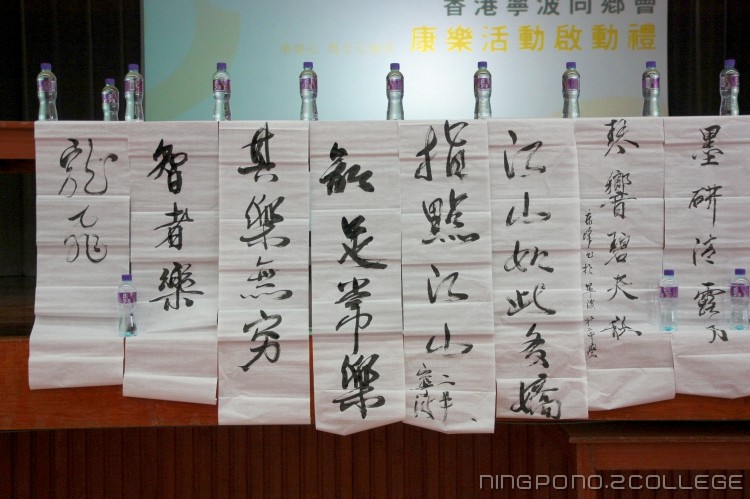 香港寧波同鄉會
康樂活動啟動禮
墨研清露月
琴響碧天秋
江山如此多嬌
指點江山
知足常樂
其樂無穷
智者樂
龍飛
NINGPONO.2COLLEGE